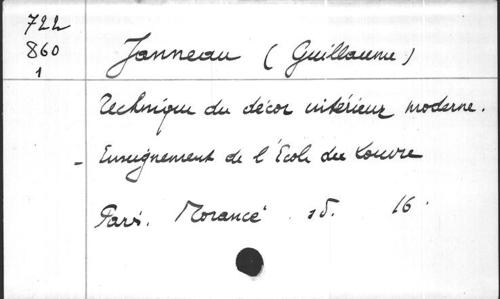 722
860
1
Janneau (Guillaume)
Technique du décor intérieur moderne.
- Enseignement de l'École du Louvre
Paris. Morancé sd. 16.